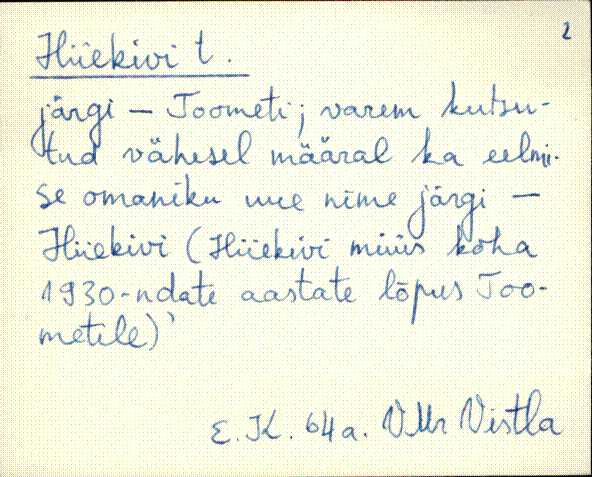 2
Hiiekivi t.
järgi — Toometi; varem kutsu-
tud vähesel määral ka eelmi-
se omaniku uue nime järgi —
Hiiekivi (Hiiekivi müüs koha
1930-ndate aastate lõpus Too-
metile)'
E. K. 64a. VMr Vistla